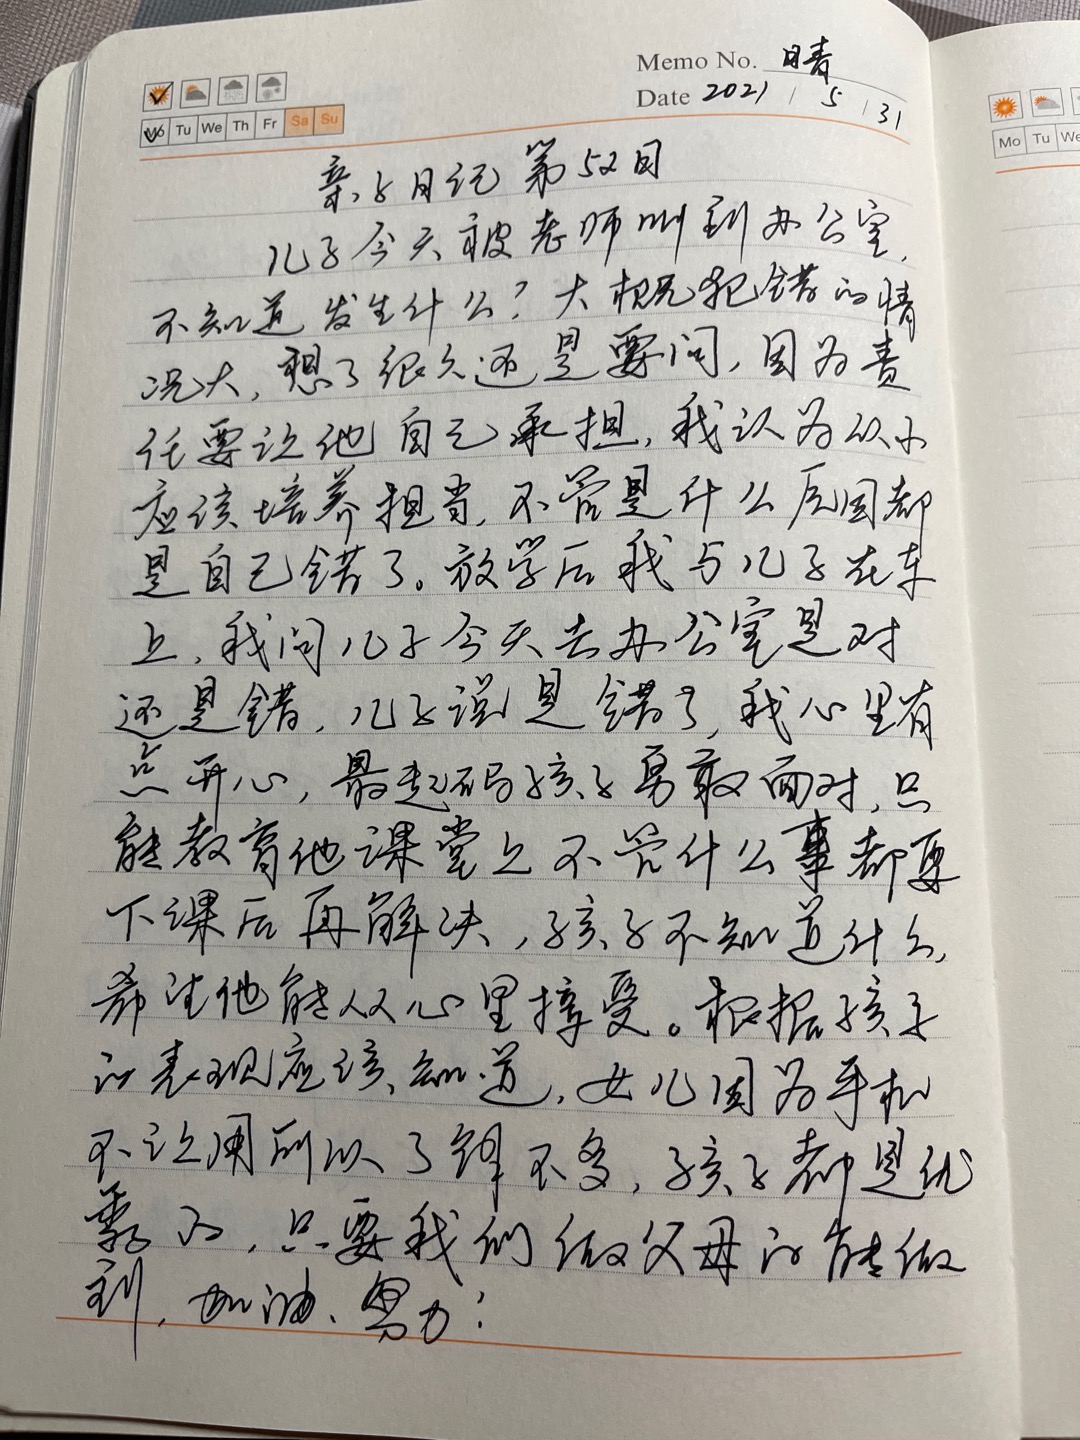 Memo No. 晴
Date 2021 / 5 / 31
Mo Tu We Th Fr Sa Su
亲子日记 第52回
儿子今天被老师叫到办公室,
不知道发生什么？大概犯错的情
况大,想了很久还是要问,因为责
任要让他自己承担,我认为从小
应该培养担当,不管是什么原因都
是自己错了。放学后我与儿子在车
上,我问儿子今天去办公室是对
还是错,儿子说是错了,我心里有
点开心,最起码孩子勇敢面对,只
能教育他课堂上不管什么事都要
下课后再解决,孩子不知道什么,
希望他能从心里接受。根据孩子
的表现应该知道,女儿因为手机
不让用所以了解不多,孩子都是优
秀的,只要我们做父母的能做
到,加油、努力！
Mo Tu We